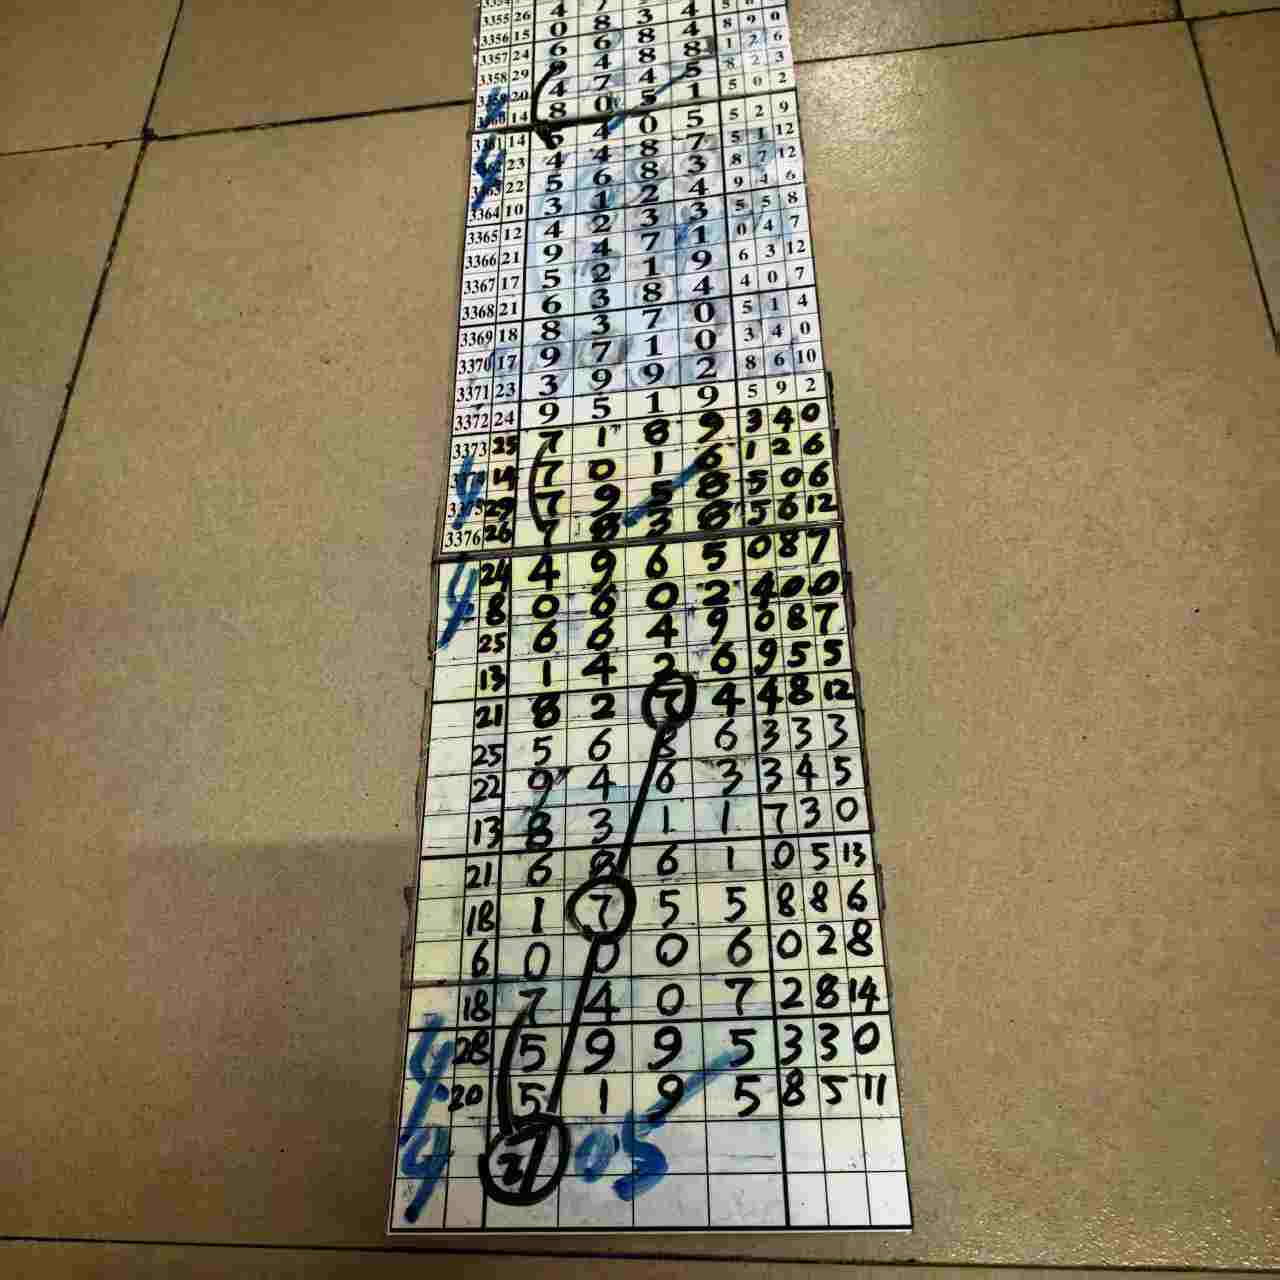 3355 26 4
3356 15 0 8 3 4 8 9 0
3357 24 6 6 8 4 1 2 6
3358 29 4 8 8 8 2 3
20 4 7 4 5 5 0 2
14 8 0 5 1 5 2 9
14 4 0 5 5 1 12
23 4 4 8 7 8 7 12
22 5 6 8 3 9 4 6
3364 10 3 1 2 4 5 5 8
3365 12 4 2 3 3 0 4 7
3366 21 9 4 7 1 6 3 12
3367 17 5 2 1 9 4 0 7
3368 21 6 3 8 4 5 1 4
3369 18 8 3 7 0 3 4 0
3370 17 9 7 1 0 8 6 10
3371 23 3 9 9 2 5 9 2
3372 24 9 5 1 9 3 4 0
3373 25 7 1 8 9 1 2 6
19 7 0 1 6 5 0 6
29 7 9 5 8 5 6 12
3376 26 7 8 3 8 0 8 7
24 4 9 6 5 4 0 0
8 0 6 0 2 0 8 7
25 6 6 4 9 9 5 5
13 1 4 2 6 4 8 12
21 8 2 7 4 3 3 3
25 5 6 8 6 3 4 5
22 9 4 6 3 7 3 0
13 8 3 1 1 0 5 13
21 6 8 6 1 8 8 6
18 1 7 5 5 0 2 8
6 0 0 0 6 2 8 14
18 7 4 0 7 3 3 0
28 5 9 9 5 8 5 11
20 5 1 9 5
05